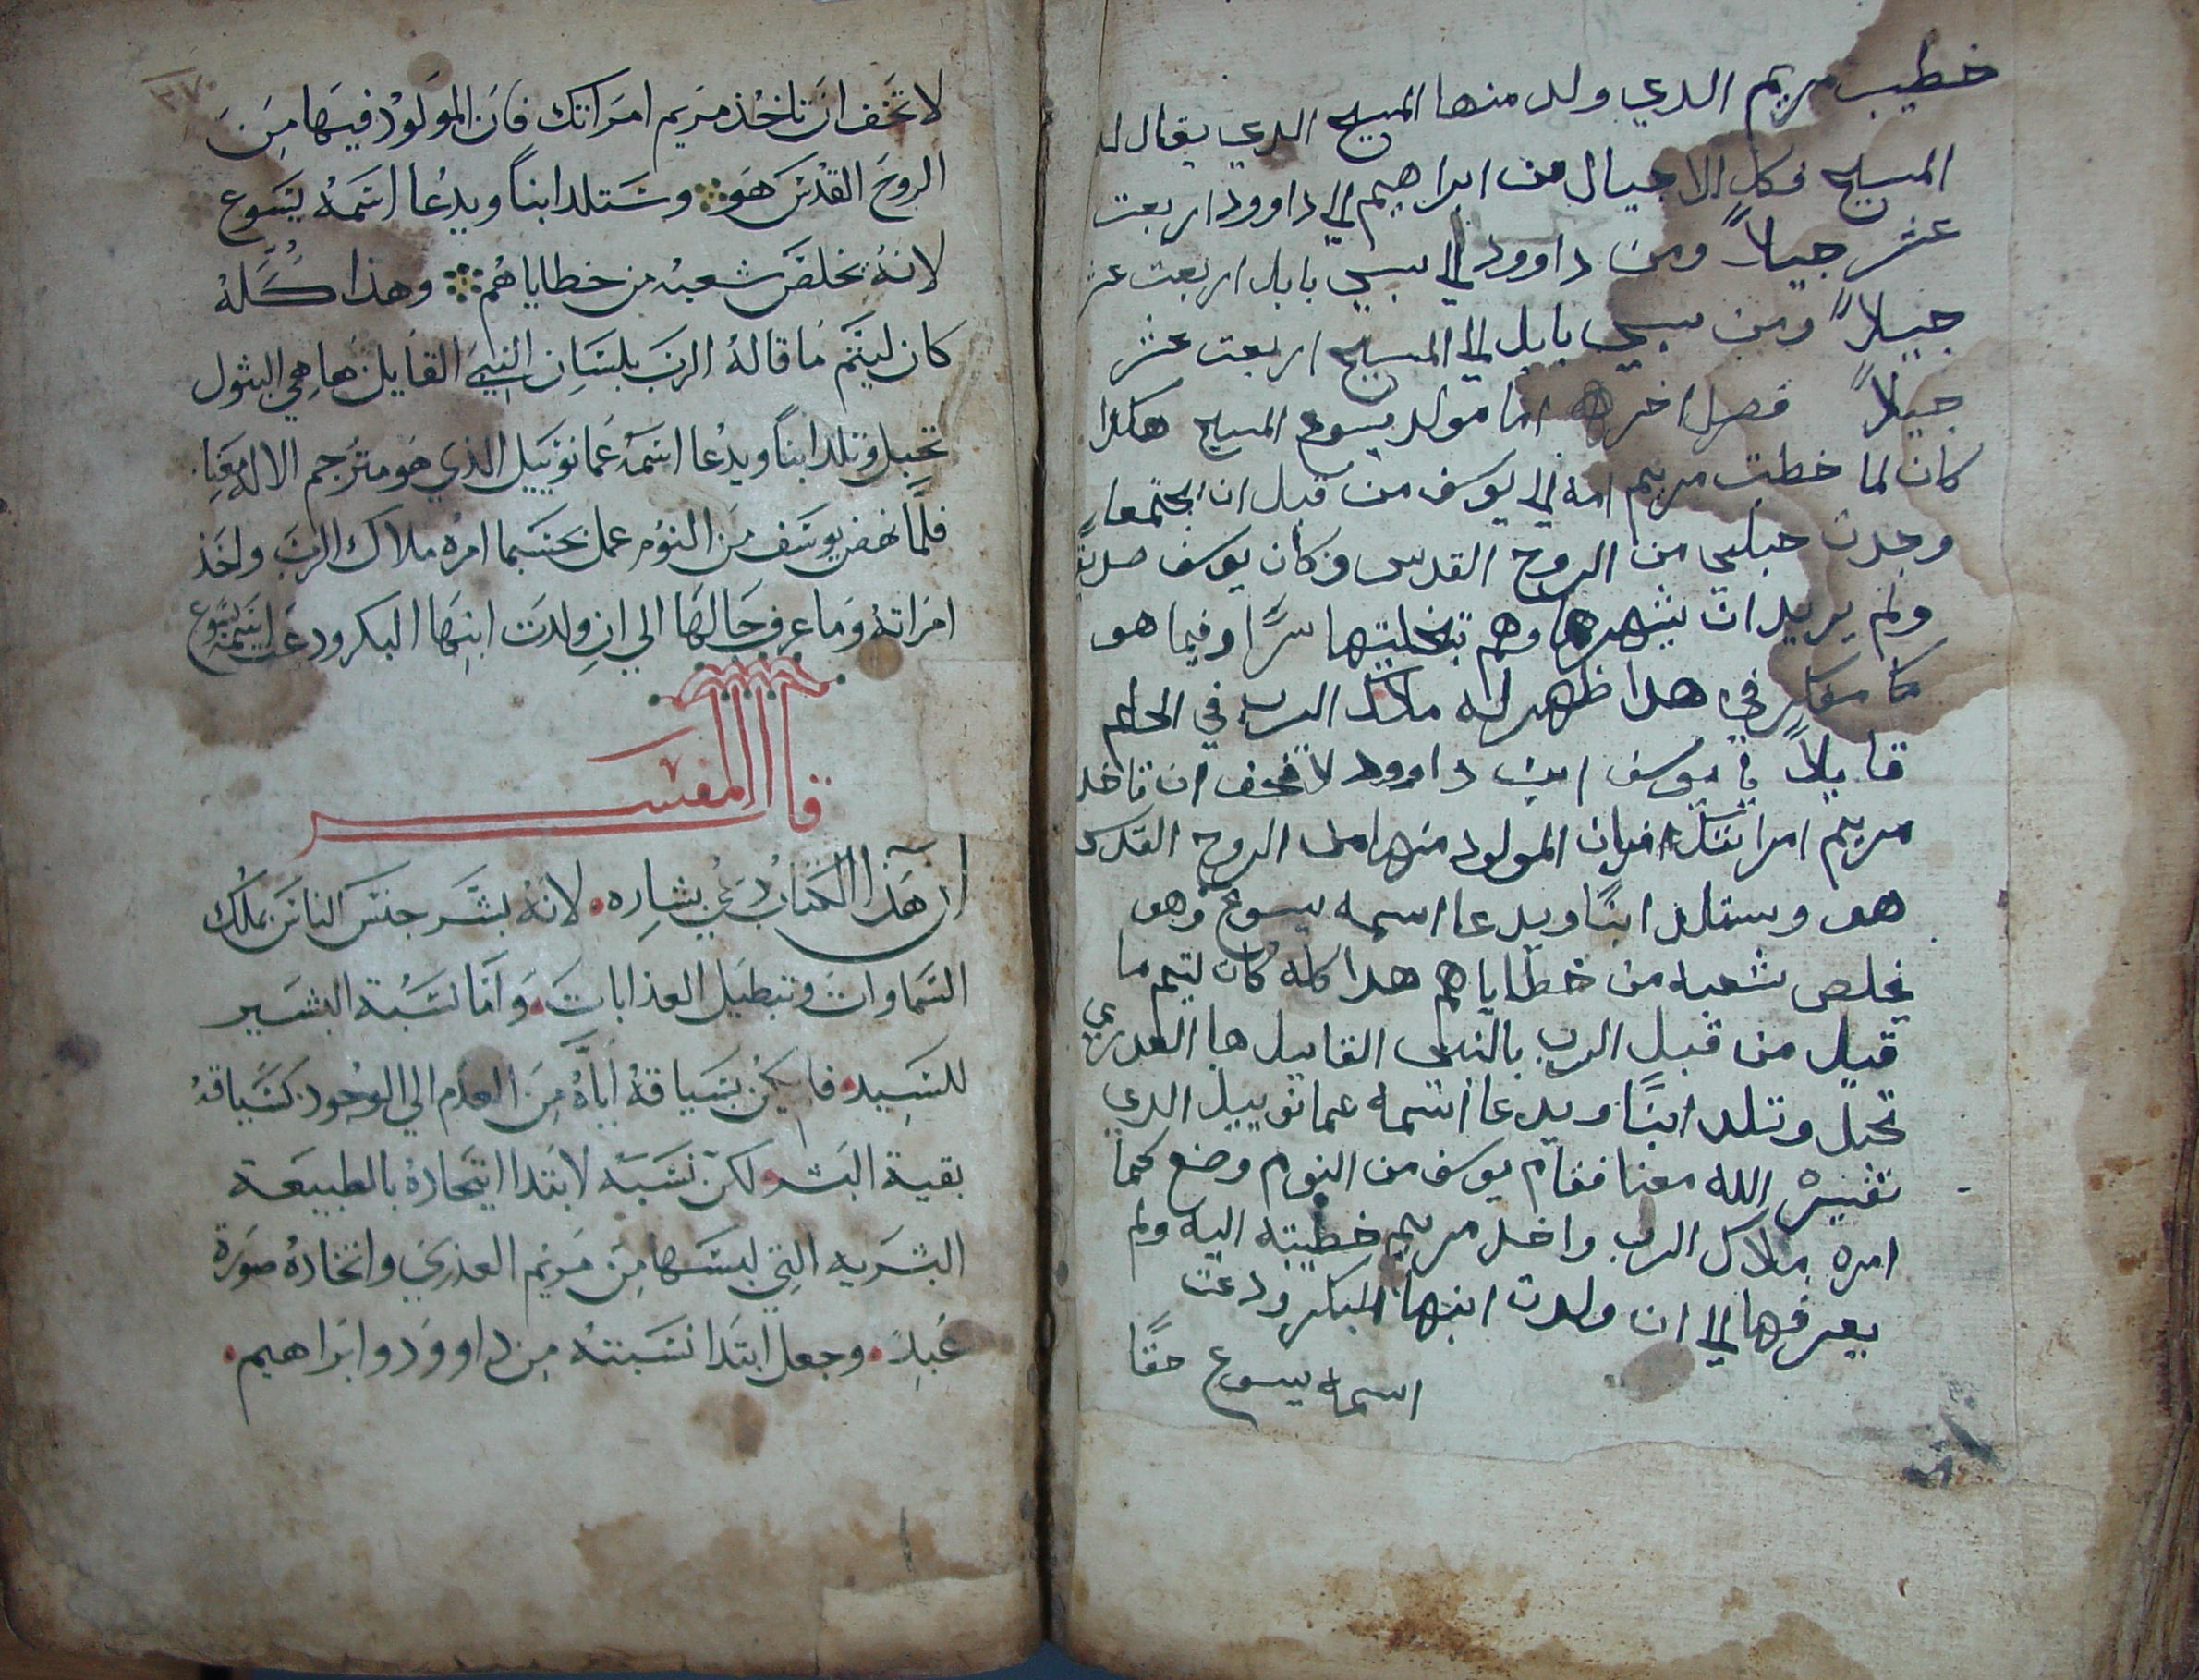 خطيب مريم الدي ولد منها المسيح الدي يقال له
المسيح فكل الاجيال من ابراهيم الي داوود اربعت
عشر جيلاً ومن داوود الي سبي بابل اربعت عشر
جيلاً ومن سبي بابل الي المسيح اربعت عشر
جيلاً فصل اخر اما مولد يسوع المسيح هكدا
كان لما خطبت مريم امه الي يوسف من قبل ان يجتمعا
وجدت حبلي من الروح القدس وكان يوسف صديقا
ولم يريد ان يشهرها وهم بتخليتها سرًا وفيما هو
مفكر في هدا ظهر له ملاك الرب في الحلم
قايلاً يا يوسف ابن داوود لا تخف ان تاخد
مريم امراتك فان المولود منها من الروح القدس
هو وستلد ابنًا ويدعا اسمه يسوع وهو
يخلص شعبه من خطاياهم هدا كله كان ليتم ما
قيل من قبل الرب بالنبي القايل ها العدري
تحبل وتلد ابنًا ويدعا اسمه عمانوييل الدي
تفسيره الله معنا فقام يوسف من النوم وصنع كما
امره ملاك الرب واخد مريم خطيبته اليه ولم
يعرفها الي ان ولدت ابنها البكر ودعت
اسمه يسوع حقًا
٢٧٠
لا تخف ان تاخذ مريم امراتك فان المولود فيها من
الروح القدس هو وستلد ابناً ويدعا اسمه يسوع
لانه يخلص شعبه من خطاياهم وهذا كله
كان ليتم ما قاله الرب بلسان النبي القايل ها هي البتول
تحبل وتلد ابناً ويدعا اسمه عمانوييل الذي هو مترجم الاله معنا
فلما نهض يوسف من النوم عمل بحسبما امره ملاك الرب واخذ
امراته وما عرف حالها الي ان ولدت ابنها البكر ودعت اسمه يسوع
قال المفسر
ان هذا الكتاب دعي بشاره لانه بشر جنس الناس بملك
السماوات وتبطيل العذابات واما نسبة البشير
للسيد فلم يكن بسياقة اباه من العدم الي الوجود كسياقة
بقية البشر ولكن نسبه لابتدا اتحاده بالطبيعة
البشريه التي لبسها من مريم العذري واتخاده صورة
عبد وجعل ابتدا نسبته من داوود وابراهيم